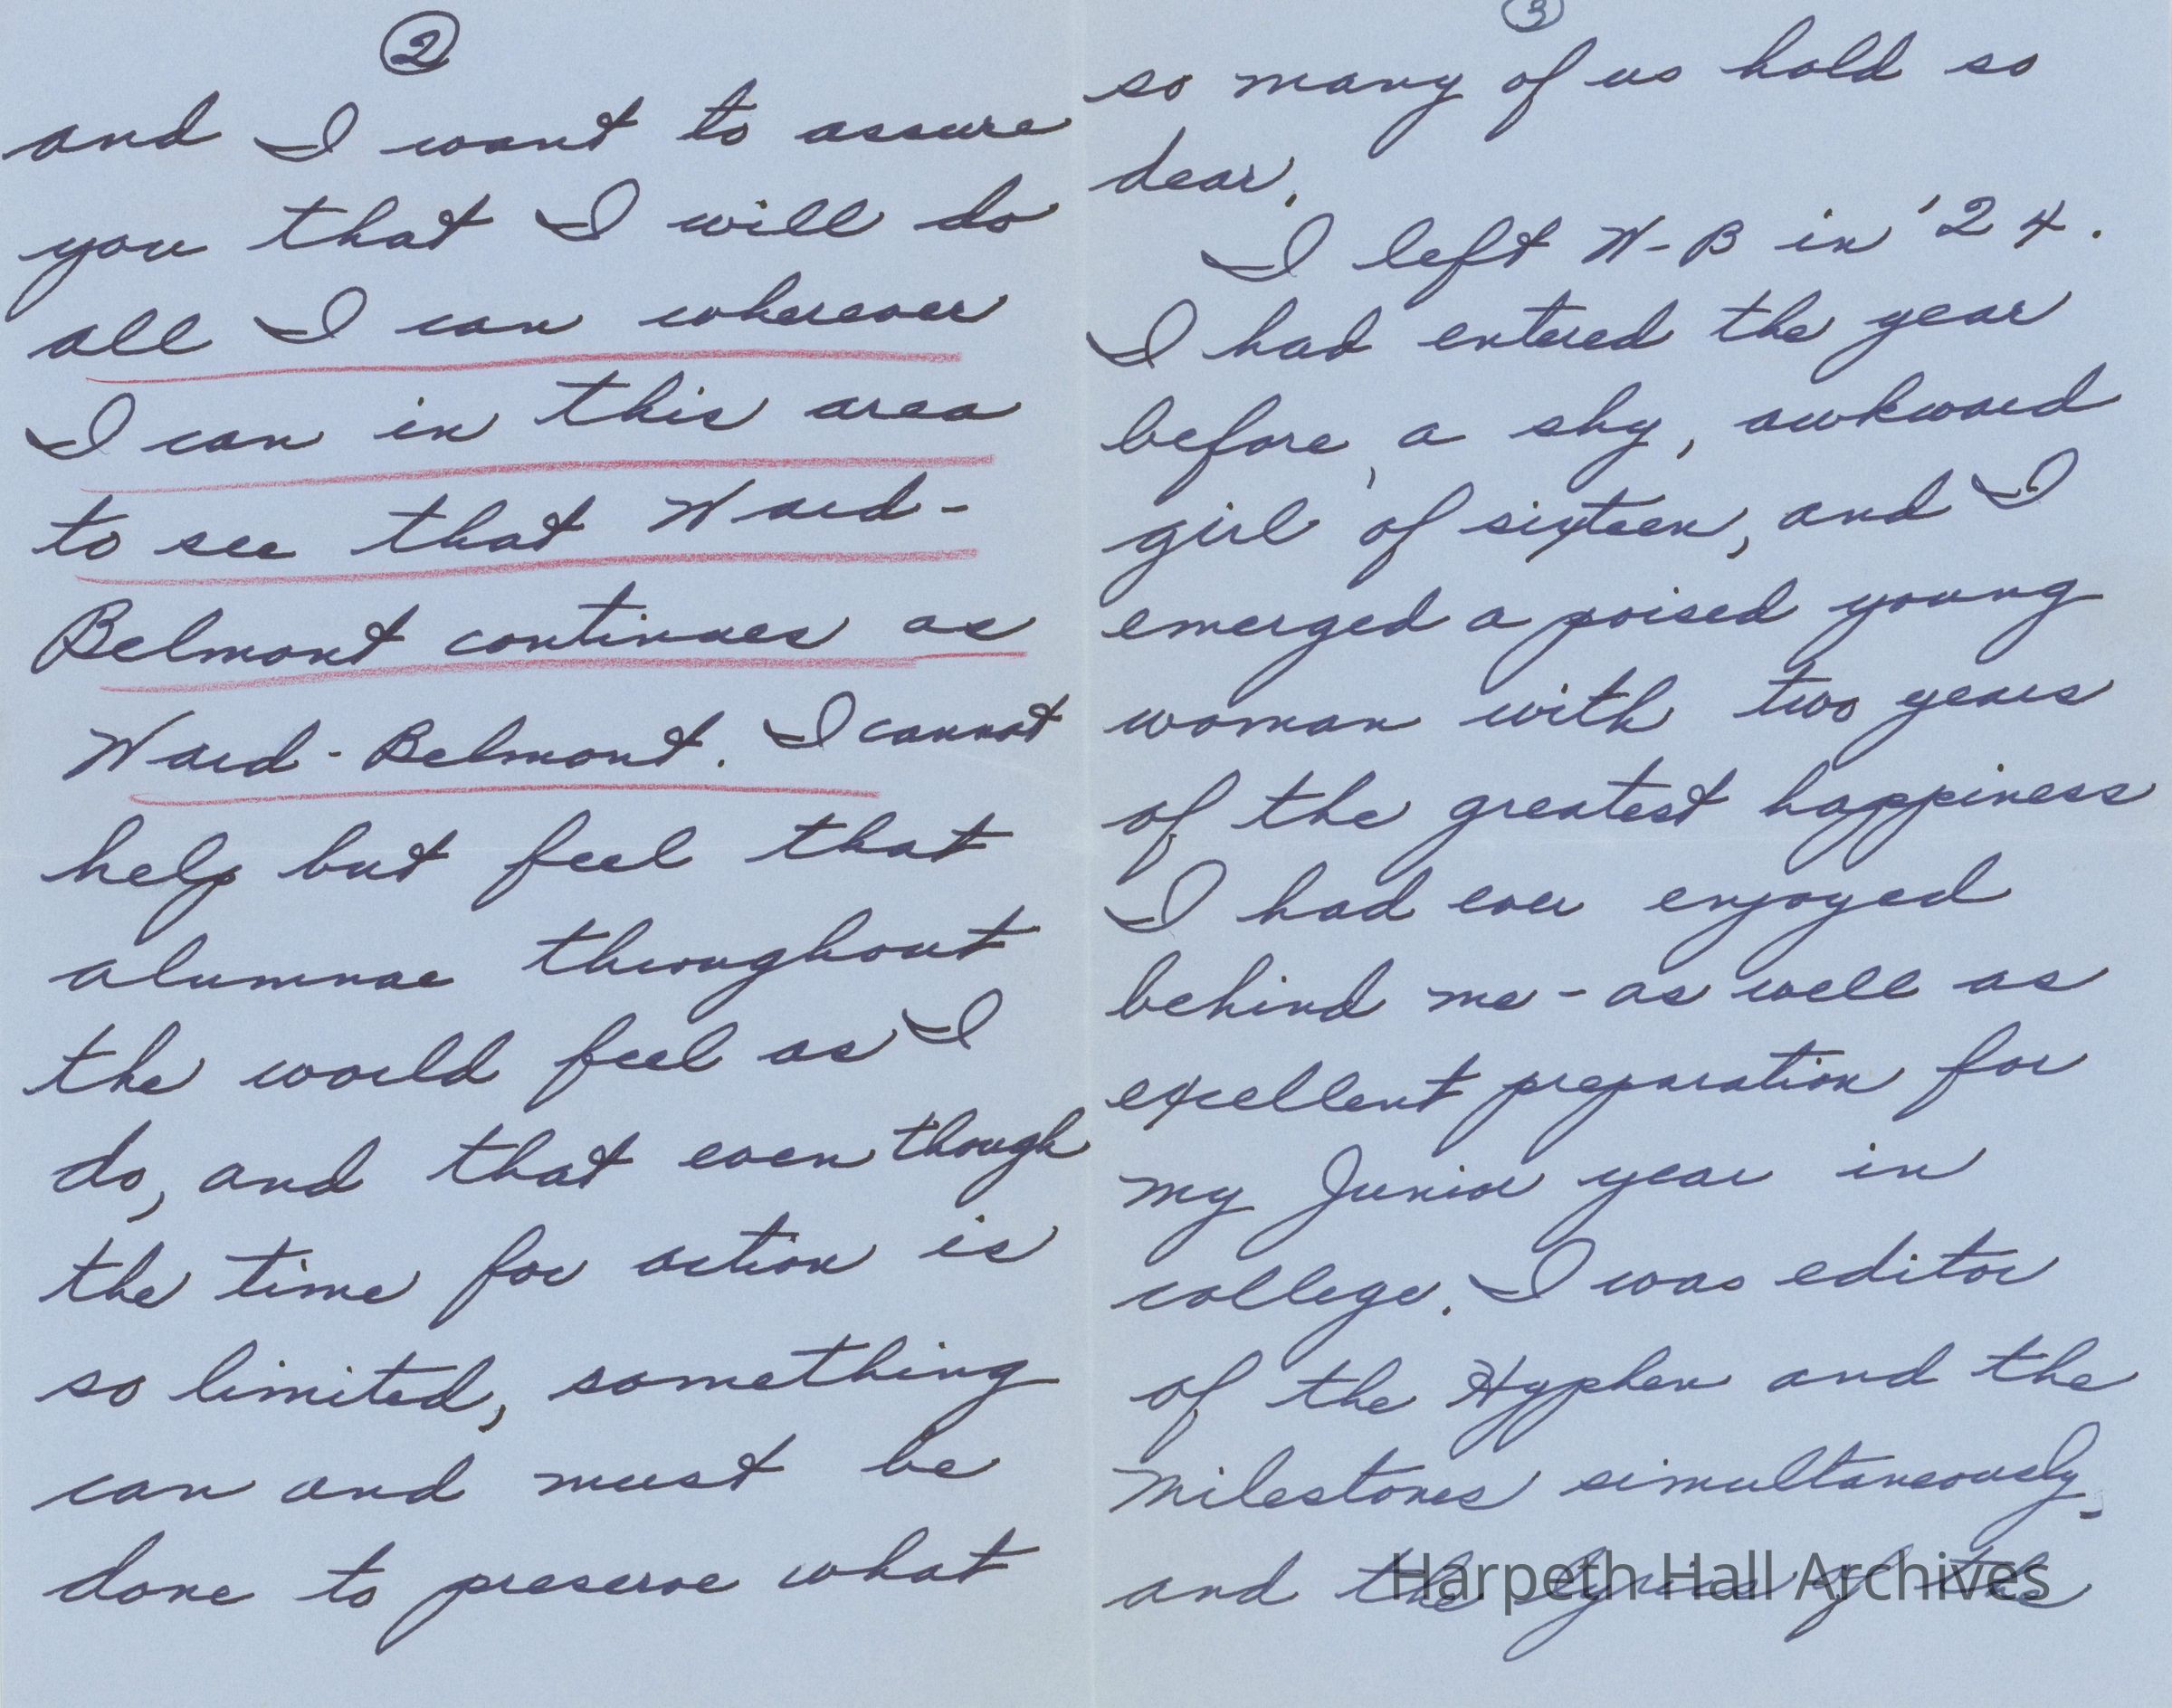 2
and I want to assure
you that I will do
all I can wherever
I can in this area
to see that Ward-
Belmont continues as
Ward-Belmont. I cannot
help but feel that
alumnae throughout
the world feel as I
do, and that even though
the time for action is
so limited, something
can and must be
done to preserve what
3
so many of us hold so
dear.
I left W-B in '24.
I had entered the year
before, a shy, awkward
girl of sixteen, and I
emerged a poised young
woman with two years
of the greatest happiness
I had ever enjoyed
behind me - as well as
excellent preparation for
my Junior year in
college. I was editor
of the Hyphen and the
Milestones simultaneously,
and the lyrics of the
Harpeth Hall Archives